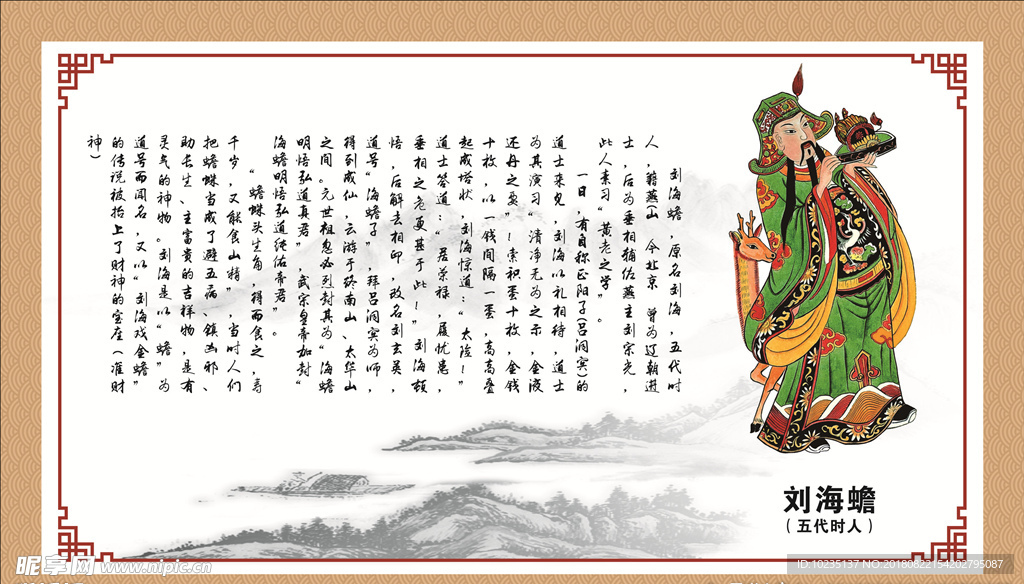 刘海蟾，原名刘海，五代时
人，籍燕山（今北京）曾为辽朝进
士，后为丞相辅佐燕主刘宗光，
此人素习“黄老之学”。
一日，有自称正阳子(吕洞宾)的
道士来见，刘海以礼相待，道士
为其演习“清净无为之示，金液
还丹之要”！索积蛋十枚，金钱
十枚，以一钱间隔一蛋，高高叠
起成塔状，刘海惊道：“太险！”
道士答道：“居荣禄，履忧患，
丞相之危更甚于此！”刘海顿
悟，后解去相印，改名刘玄英，
道号“海蟾子”，拜吕洞宾为师，
得到成仙，云游于终南山、太华山
之间。元世祖忽必烈封其为“海蟾
明悟弘道真君”，武宗皇帝加封“
海蟾明悟弘道纯佑帝君”。
“蟾蜍头生角，得而食之，寿
千岁，又能食山精”，当时人们
把蟾蜍当成了避五病、镇凶邪、
助长生、主富贵的吉祥物，是有
灵气的神物。刘海是以“蟾”为
道号而闻名，又以“刘海戏金蟾”
的传说被抬上了财神的宝座（准财
神）
刘海蟾
（五代时人）
昵享网 www.nipic.cn
ID:10235137 NO:20180822154202795087